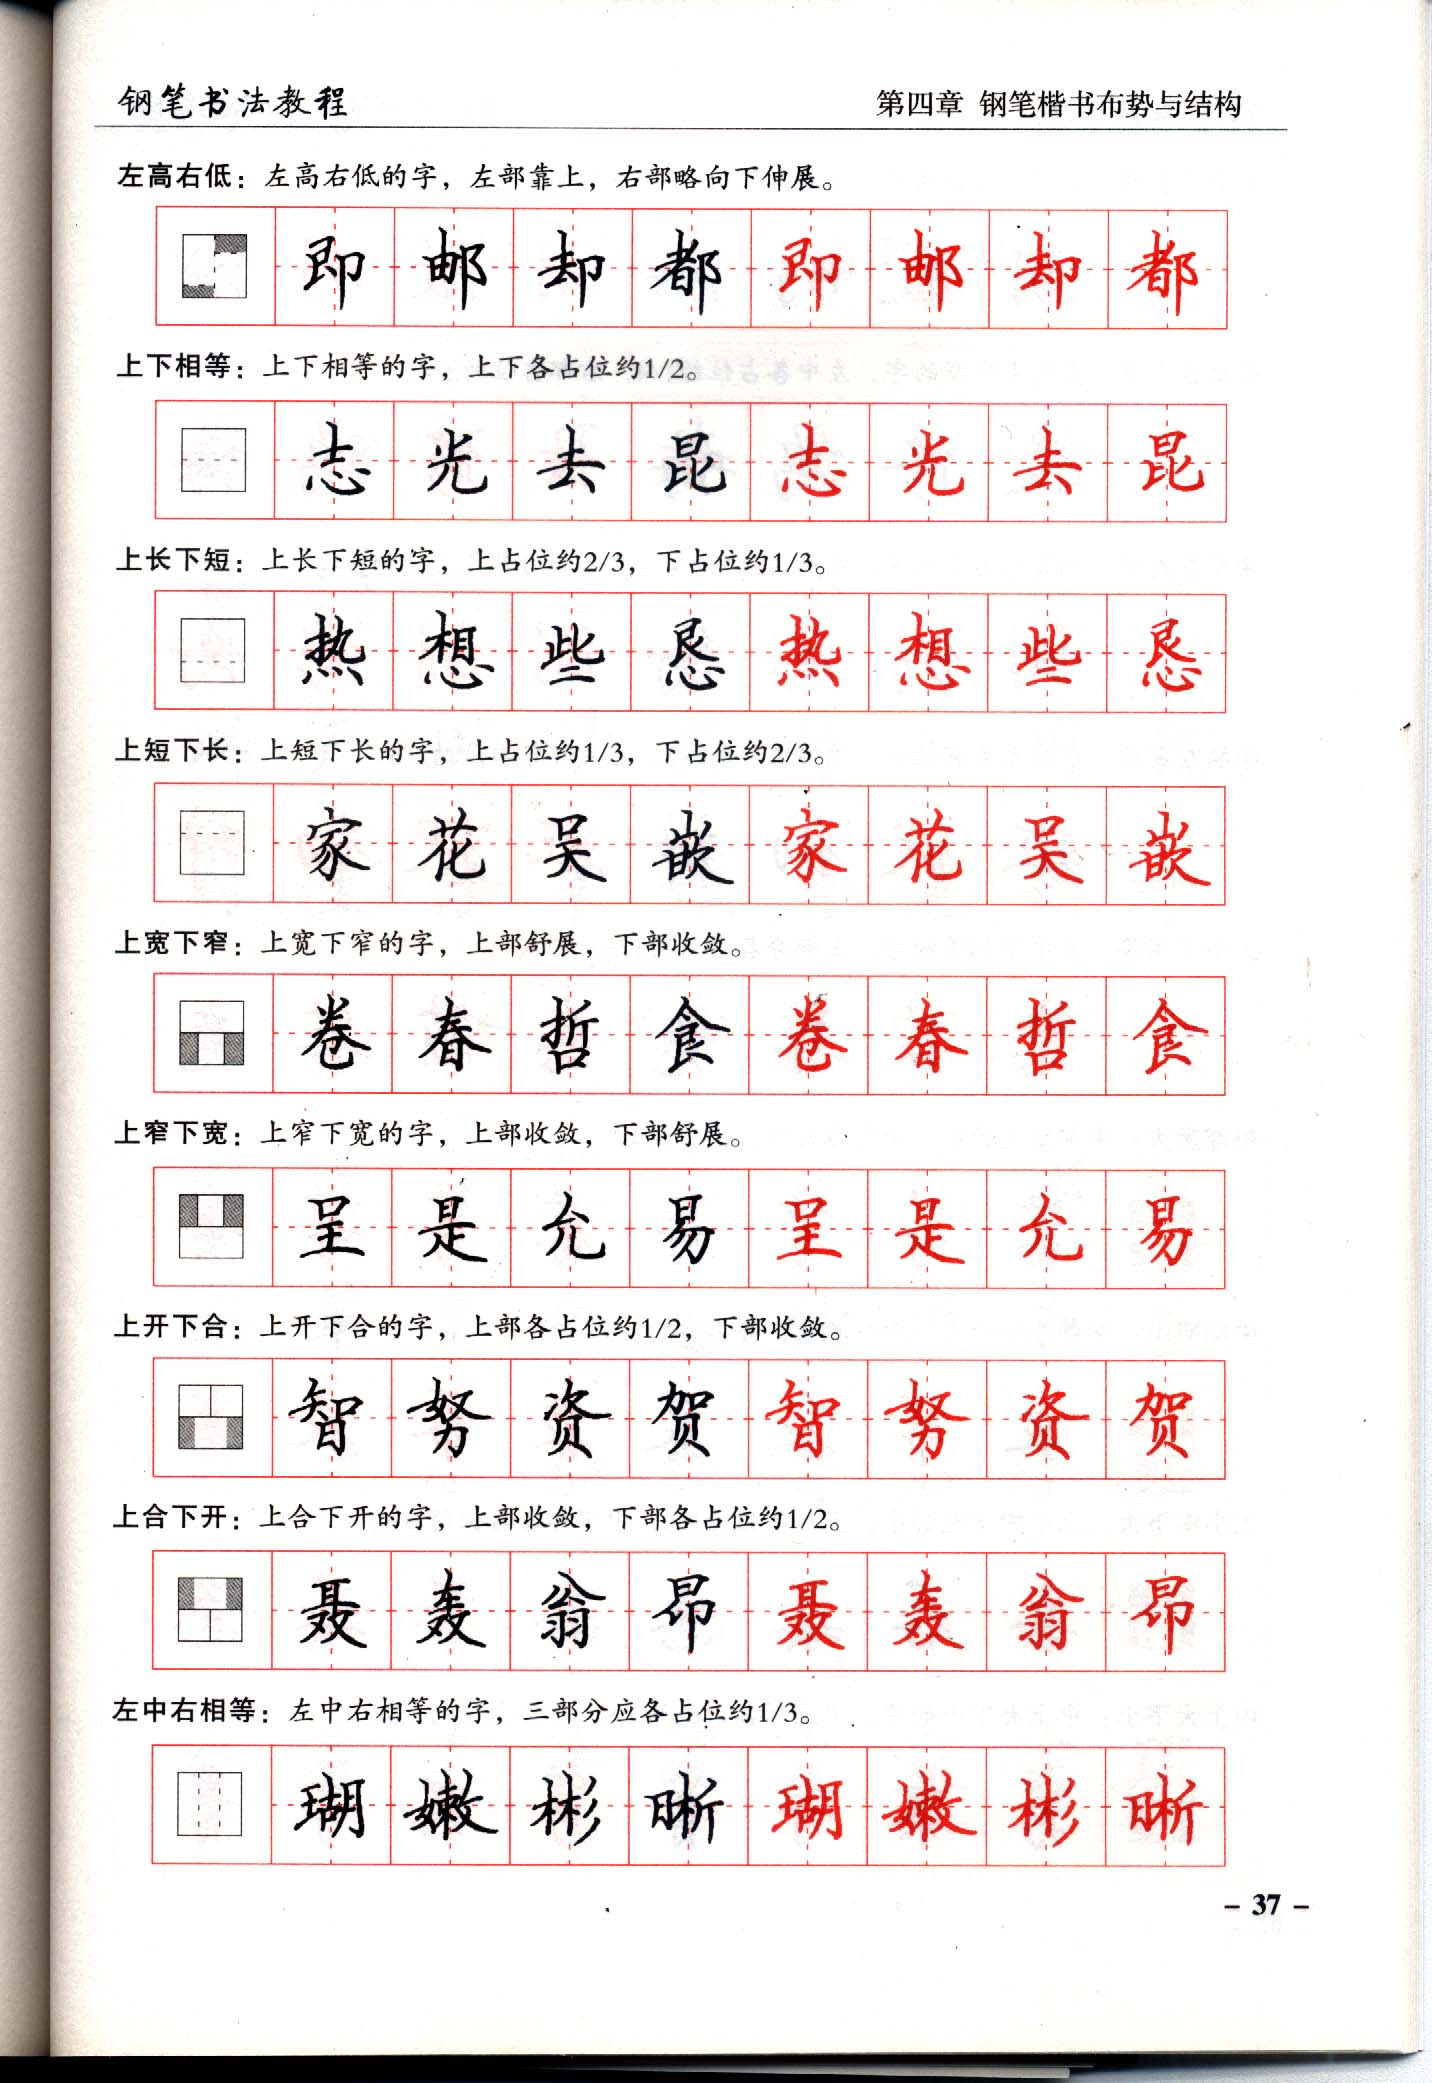 钢笔书法教程
第四章 钢笔楷书布势与结构
左高右低：左高右低的字，左部靠上，右部略向下伸展。
即 邮 却 都 即 邮 却 都
上下相等：上下相等的字，上下各占位约1/2。
志 光 去 昆 志 光 去 昆
上长下短：上长下短的字，上占位约2/3，下占位约1/3。
热 想 些 恳 热 想 些 恳
上短下长：上短下长的字，上占位约1/3，下占位约2/3。
家 花 吴 嵌 家 花 吴 嵌
上宽下窄：上宽下窄的字，上部舒展，下部收敛。
卷 春 哲 食 卷 春 哲 食
上窄下宽：上窄下宽的字，上部收敛，下部舒展。
呈 是 允 易 呈 是 允 易
上开下合：上开下合的字，上部各占位约1/2，下部收敛。
智 努 资 贺 智 努 资 贺
上合下开：上合下开的字，上部收敛，下部各占位约1/2。
聂 轰 翁 昂 聂 轰 翁 昂
左中右相等：左中右相等的字，三部分应各占位约1/3。
瑚 嫩 彬 晰 瑚 嫩 彬 晰
- 37 -